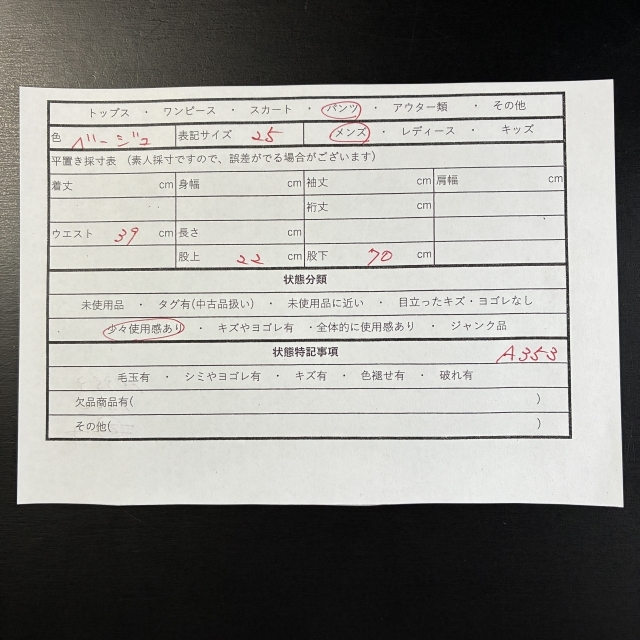 トップス ・ ワンピース ・ スカート ・ パンツ ・ アウター類 ・ その他
色 ベージュ 表記サイズ 25 メンズ ・ レディース ・ キッズ
平置き採寸表 (素人採寸ですので、誤差がでる場合がございます)
着丈 cm 身幅 cm 袖丈 cm 肩幅 cm
裄丈 cm
ウエスト 39 cm 長さ cm
股上 22 cm 股下 70 cm
状態分類
未使用品 ・ タグ有(中古品扱い) ・ 未使用品に近い ・ 目立ったキズ・ヨゴレなし
少々使用感あり ・ キズやヨゴレ有 ・全体的に使用感あり ・ ジャンク品
状態特記事項 A353
毛玉有 ・ シミやヨゴレ有 ・ キズ有 ・ 色褪せ有 ・ 破れ有
欠品商品有( )
その他( )